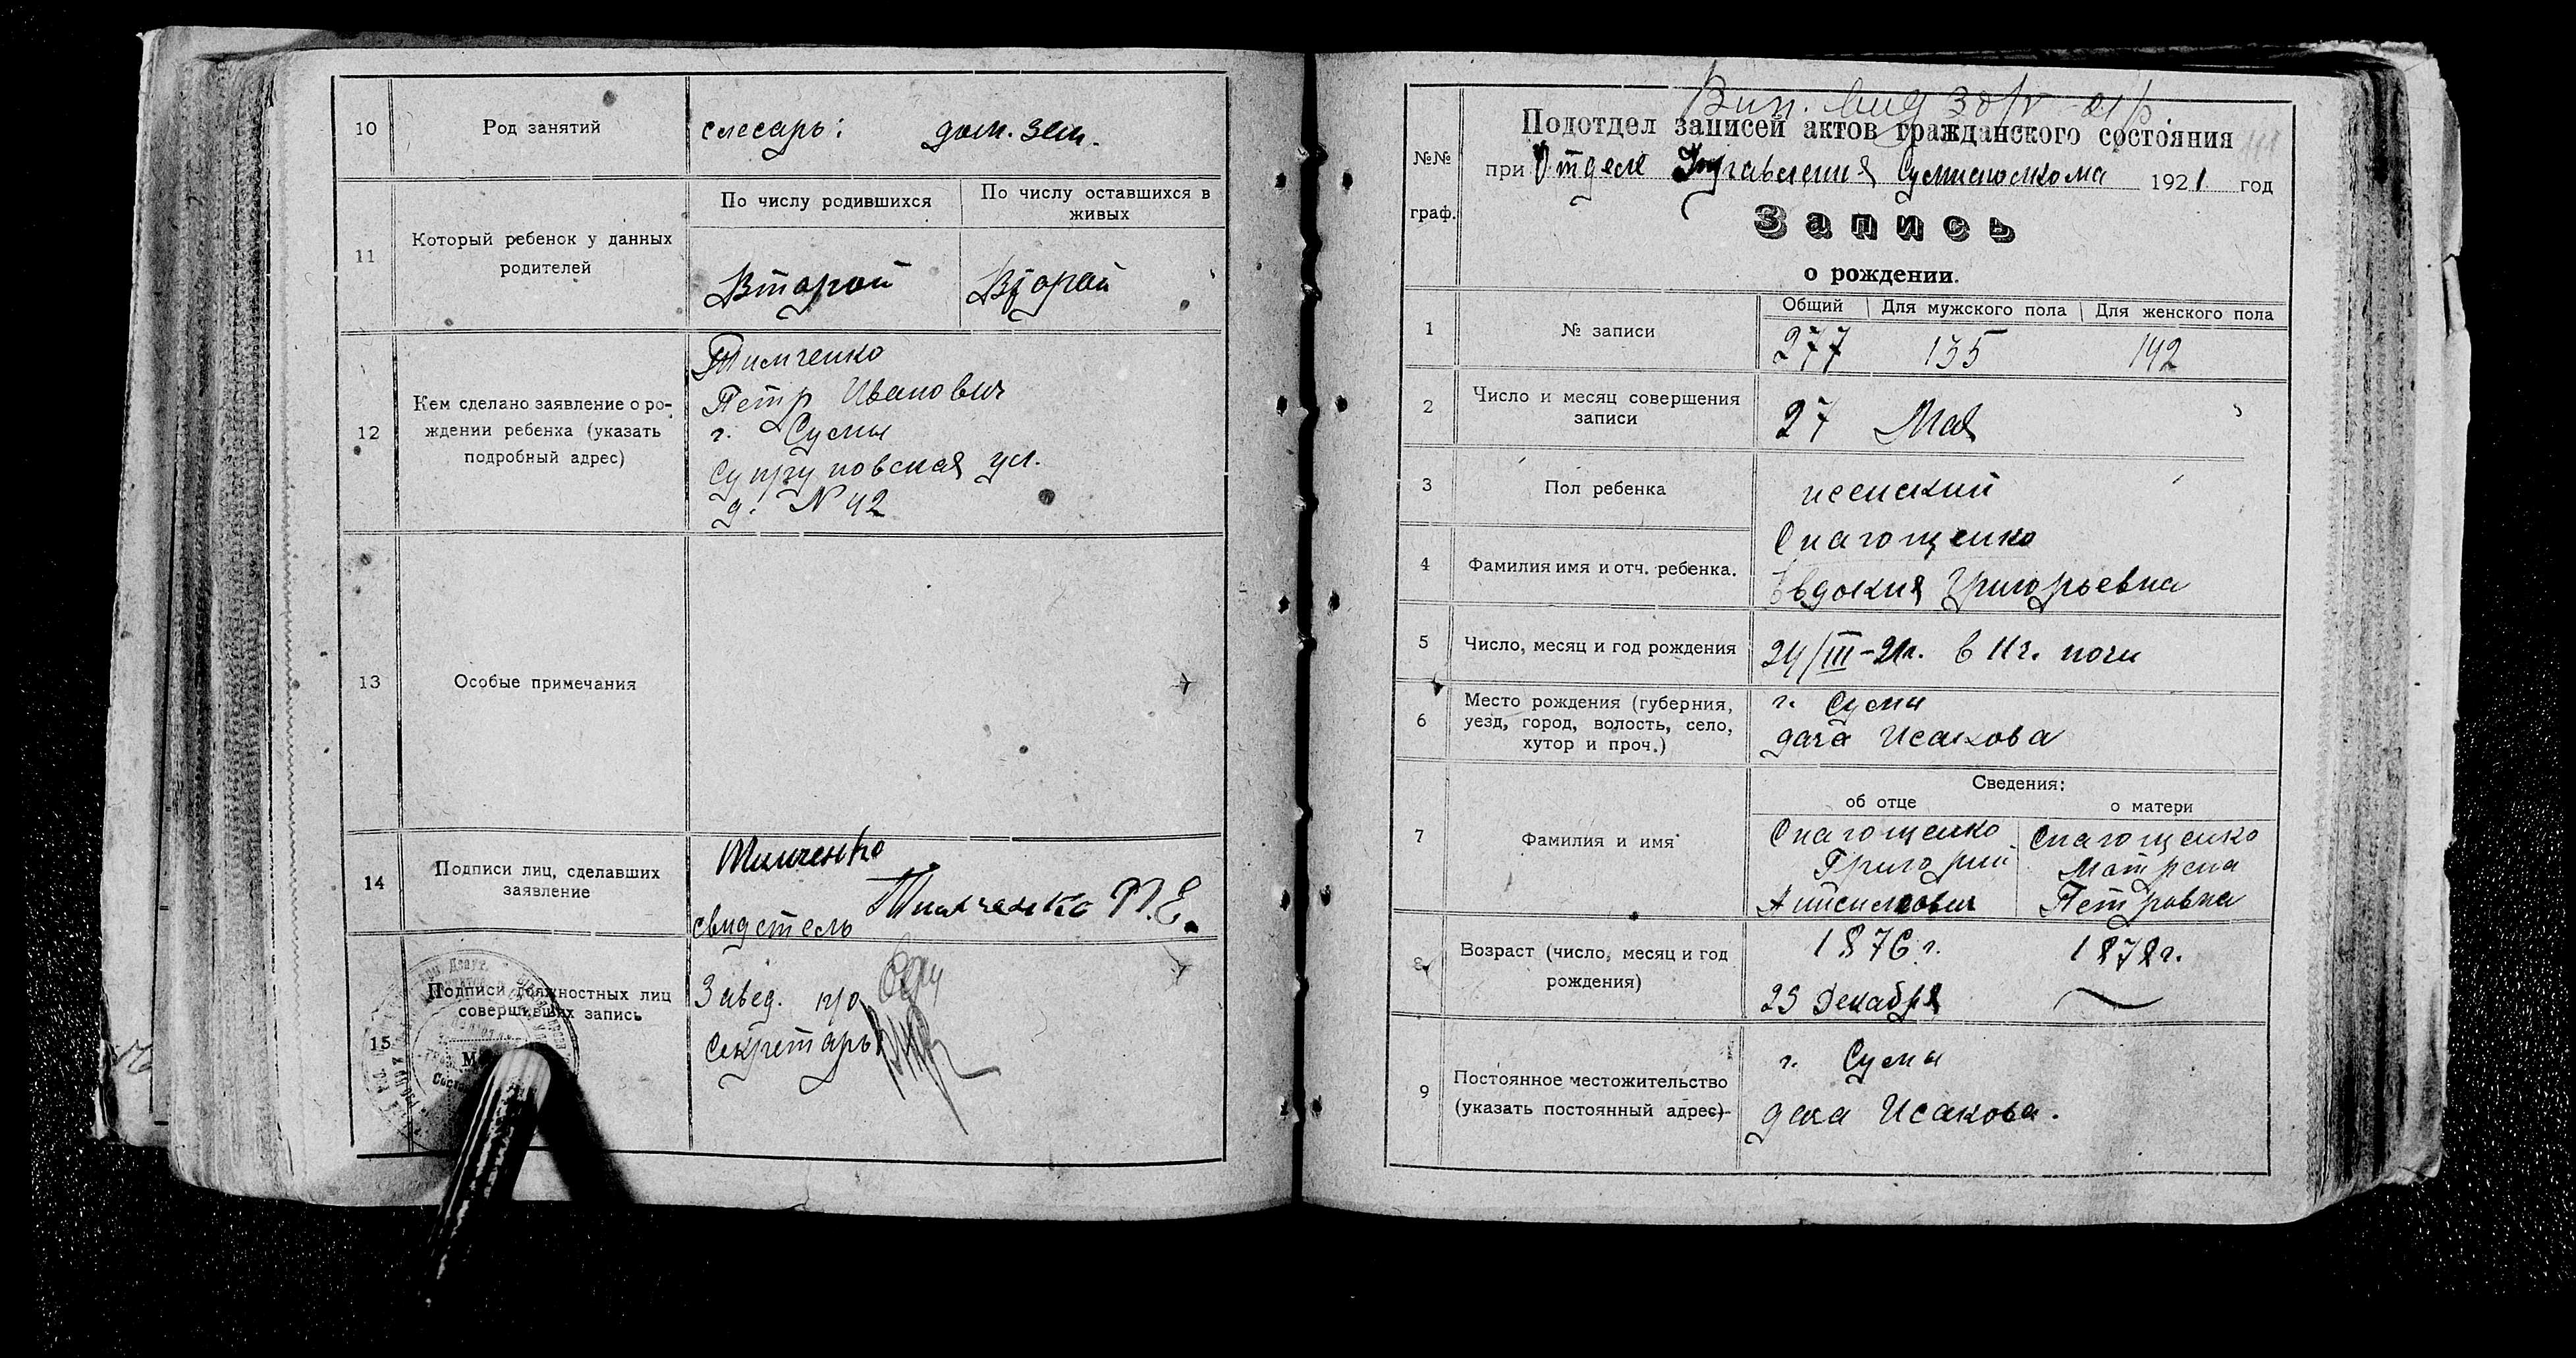 10 Род занятий слесарь: дом. зан.
11 Который ребенок у данных родителей
По числу родившихся По числу оставшихся в живых
Второй Второй
12 Кем сделано заявление о ро-
ждении ребенка (указать
подробный адрес)
Тимченко
Петр Иванович
г. Сумы
Супруновская ул.
д. N 42
13 Особые примечания
14 Подписи лиц, сделавших
заявление
Тимченко
свидетель Тимченко П.Е.
15 Подписи должностных лиц
совершивших запись
Завед. п/о
Секретарь
Вып. 30/V-21
№№ граф.
Подотдел записей актов гражданского состояния
при Отделе Управления 1921 год
Запись
о рождении.
1 № записи
Общий Для мужского пола Для женского пола
277 135 142
2 Число и месяц совершения
записи
27 Мая
3 Пол ребенка женский
4 Фамилия имя и отч. ребенка.
Снагощенко
Евдокия Григорьевна
5 Число, месяц и год рождения 24/III-21г. в 11ч. ночи
6 Место рождения (губерния,
уезд, город, волость, село,
хутор и проч.)
г. Сумы
дача Исакова
7 Фамилия и имя
Сведения:
об отце о матери
Снагощенко Снагощенко
Григорий Матрена
Анисимович Петровна
8 Возраст (число, месяц и год
рождения)
1876 г. 1878 г.
25 Декабря
9 Постоянное местожительство
(указать постоянный адрес)
г. Сумы
дача Исакова.